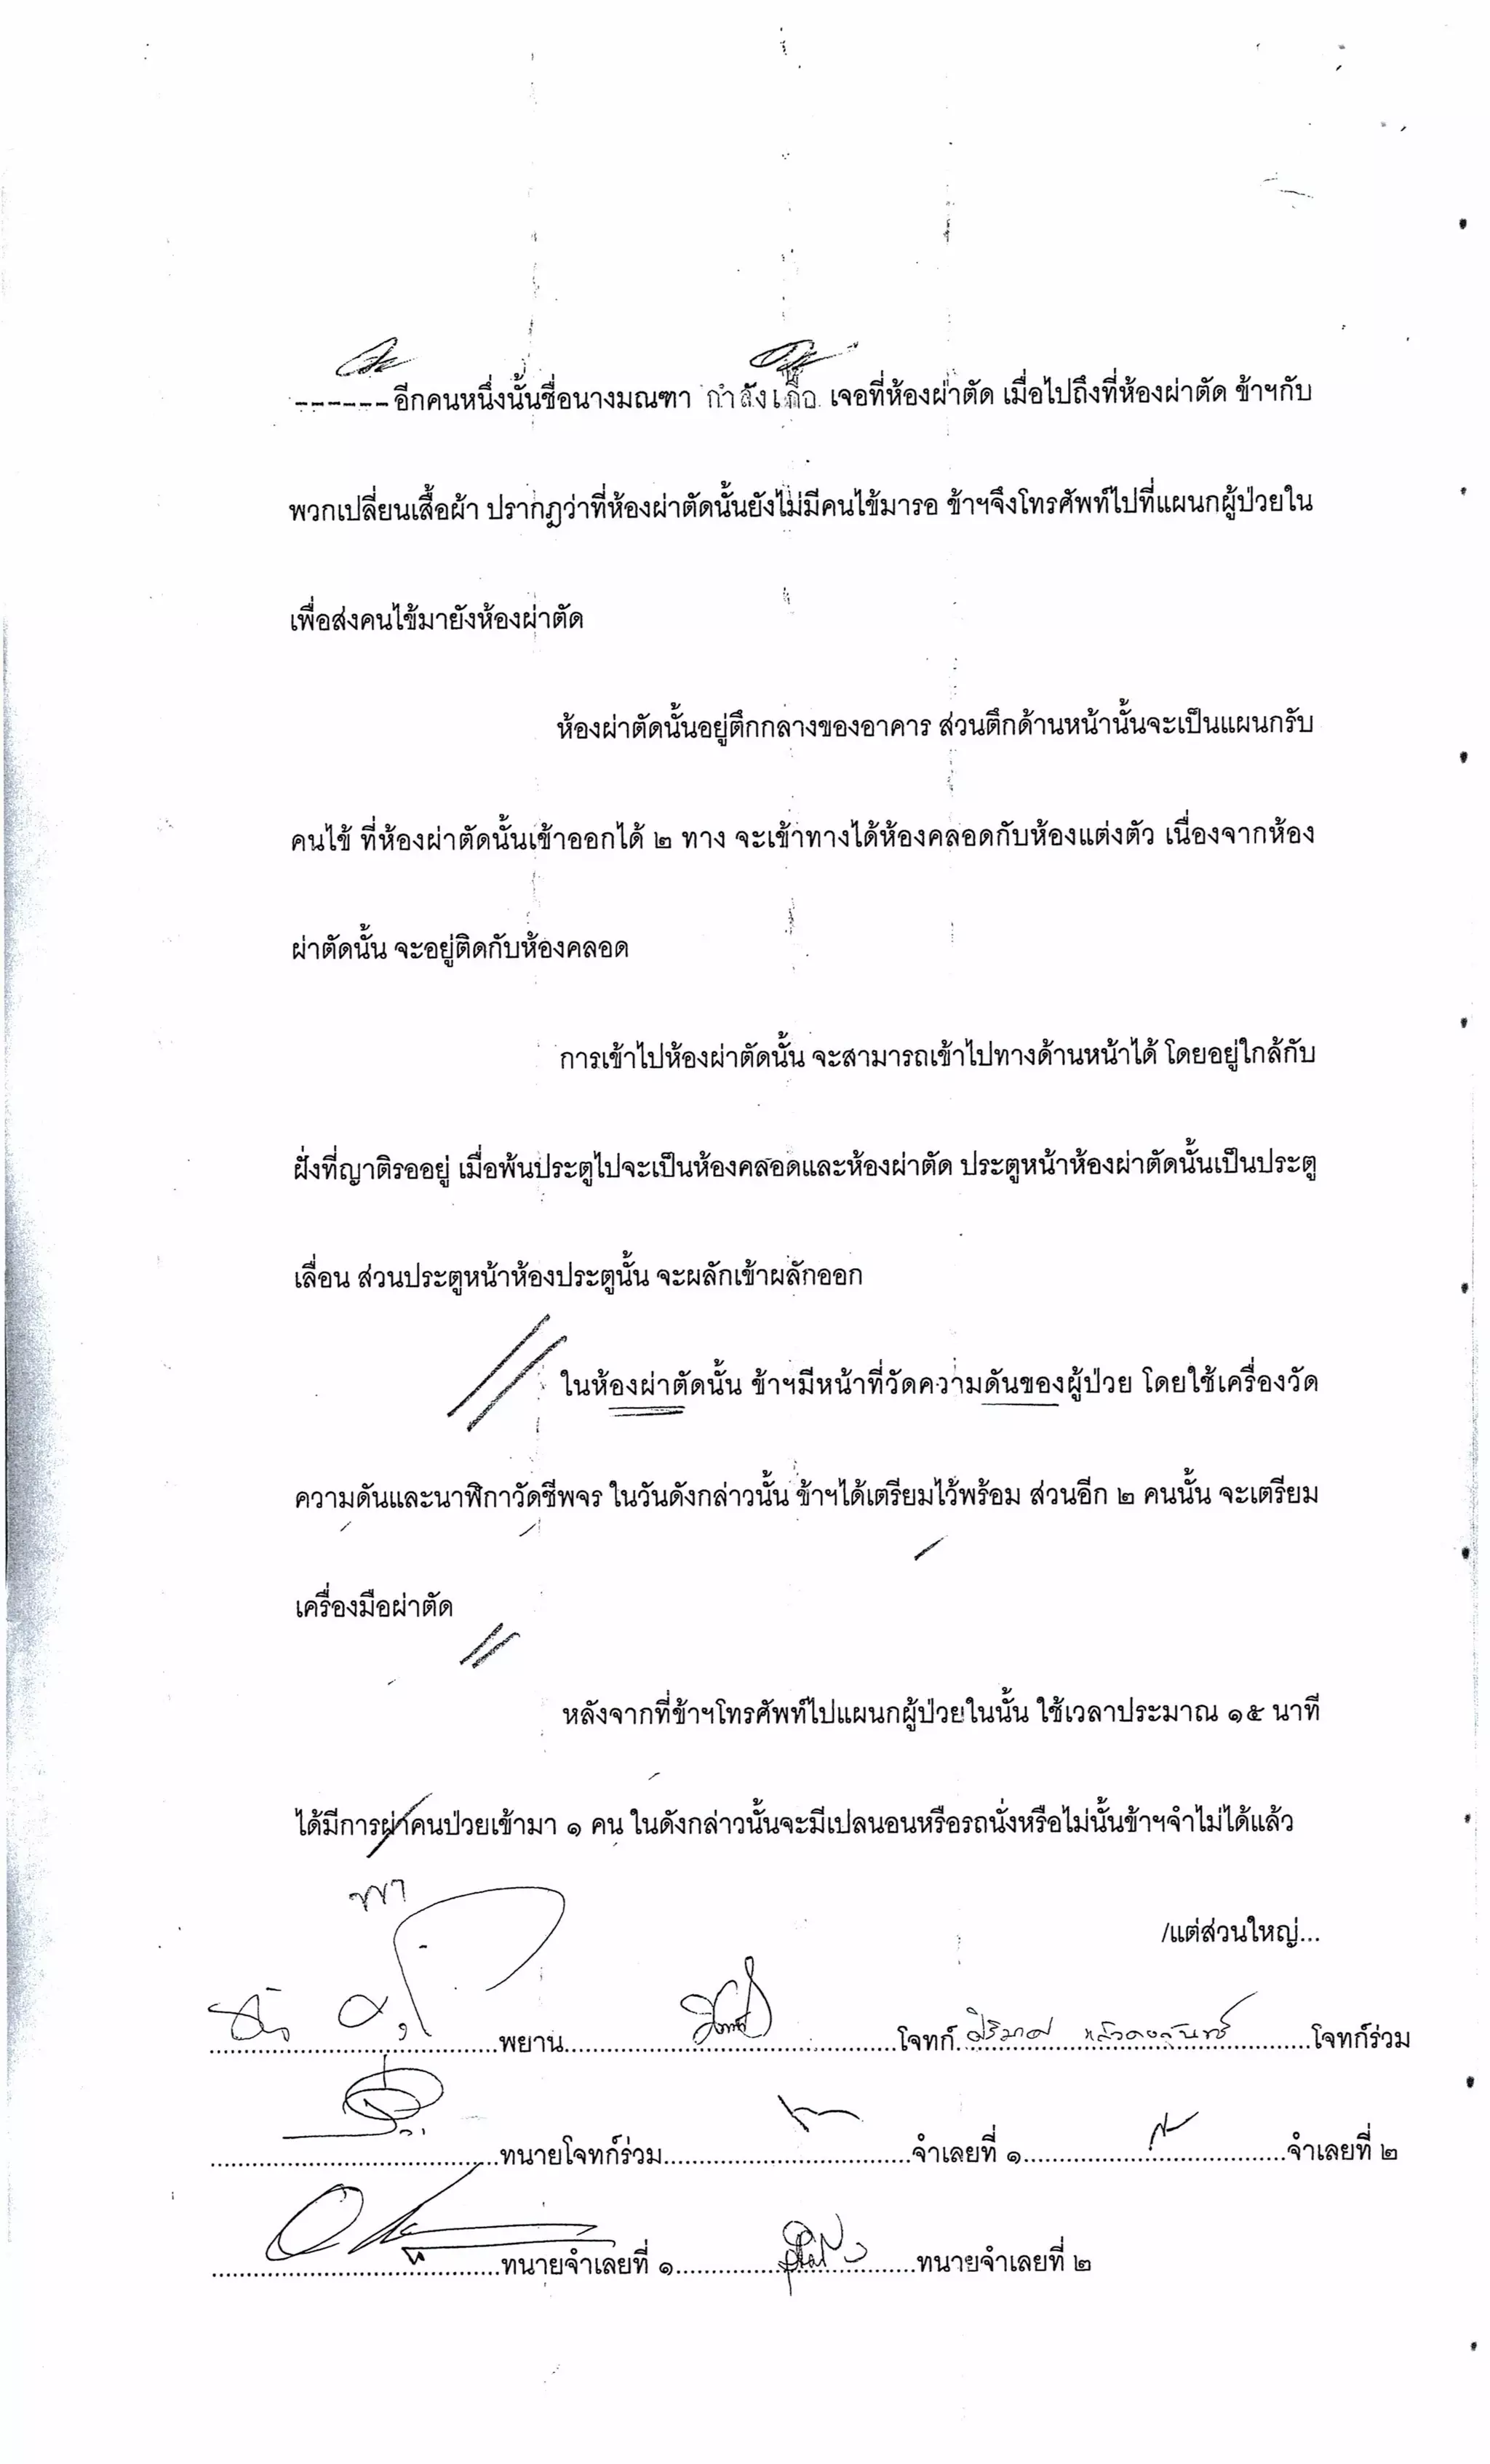 ------อีกคนหนึ่งนั้นชื่อนางมณฑา กำลังเกื้อ เจอที่ห้องผ่าตัด เมื่อไปถึงที่ห้องผ่าตัด ข้าฯกับ
พวกเปลี่ยนเสื้อผ้า ปรากฏว่าที่ห้องผ่าตัดนั้นยังไม่มีคนไข้มารอ ข้าฯจึงโทรศัพท์ไปที่แผนกผู้ป่วยใน
เพื่อส่งคนไข้มายังห้องผ่าตัด
ห้องผ่าตัดนั้นอยู่ตึกกลางของอาคาร ส่วนตึกด้านหน้านั้นจะเป็นแผนกรับ
คนไข้ ที่ห้องผ่าตัดนั้นเข้าออกได้ ๒ ทาง จะเข้าทางได้ห้องคลอดกับห้องแต่งตัว เนื่องจากห้อง
ผ่าตัดนั้น จะอยู่ติดกับห้องคลอด
การเข้าไปห้องผ่าตัดนั้น จะสามารถเข้าไปทางด้านหน้าได้ โดยอยู่ใกล้กับ
ฝั่งที่ญาติรออยู่ เมื่อพ้นประตูไปจะเป็นห้องคลอดและห้องผ่าตัด ประตูหน้าห้องผ่าตัดนั้นเป็นประตู
เลื่อน ส่วนประตูหน้าห้องประตูนั้น จะผลักเข้าผลักออก
ในห้องผ่าตัดนั้น ข้าฯมีหน้าที่วัดความดันของผู้ป่วย โดยใช้เครื่องวัด
ความดันและนาฬิกาวัดชีพจร ในวันดังกล่าวนั้น ข้าฯได้เตรียมไว้พร้อม ส่วนอีก ๒ คนนั้น จะเตรียม
เครื่องมือผ่าตัด
หลังจากที่ข้าฯโทรศัพท์ไปแผนกผู้ป่วยในนั้น ใช้เวลาประมาณ ๑๕ นาที
ได้มีการผ่าคนป่วยเข้ามา ๑ คน ในดังกล่าวนั้นจะมีเปลนอนหรือรถนั่งหรือไม่นั้นข้าฯจำไม่ได้แล้ว
พา
/แต่ส่วนใหญ่...
พยาน โจทก์ โจทก์ร่วม
ทนายโจทก์ร่วม จำเลยที่ ๑ จำเลยที่ ๒
ทนายจำเลยที่ ๑ ทนายจำเลยที่ ๒